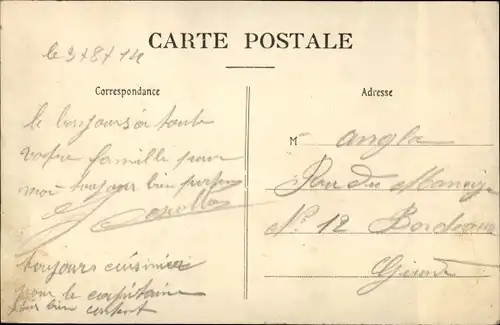 CARTE POSTALE
le 3/8/14
Correspondance
Adresse
le bonjours a toute
votre famille pour
moi toujour bien
toujours cuisinier
pour le capitaine
bien content
M Angla
Rue du Manège
N° 12 Bordeaux
Gironde